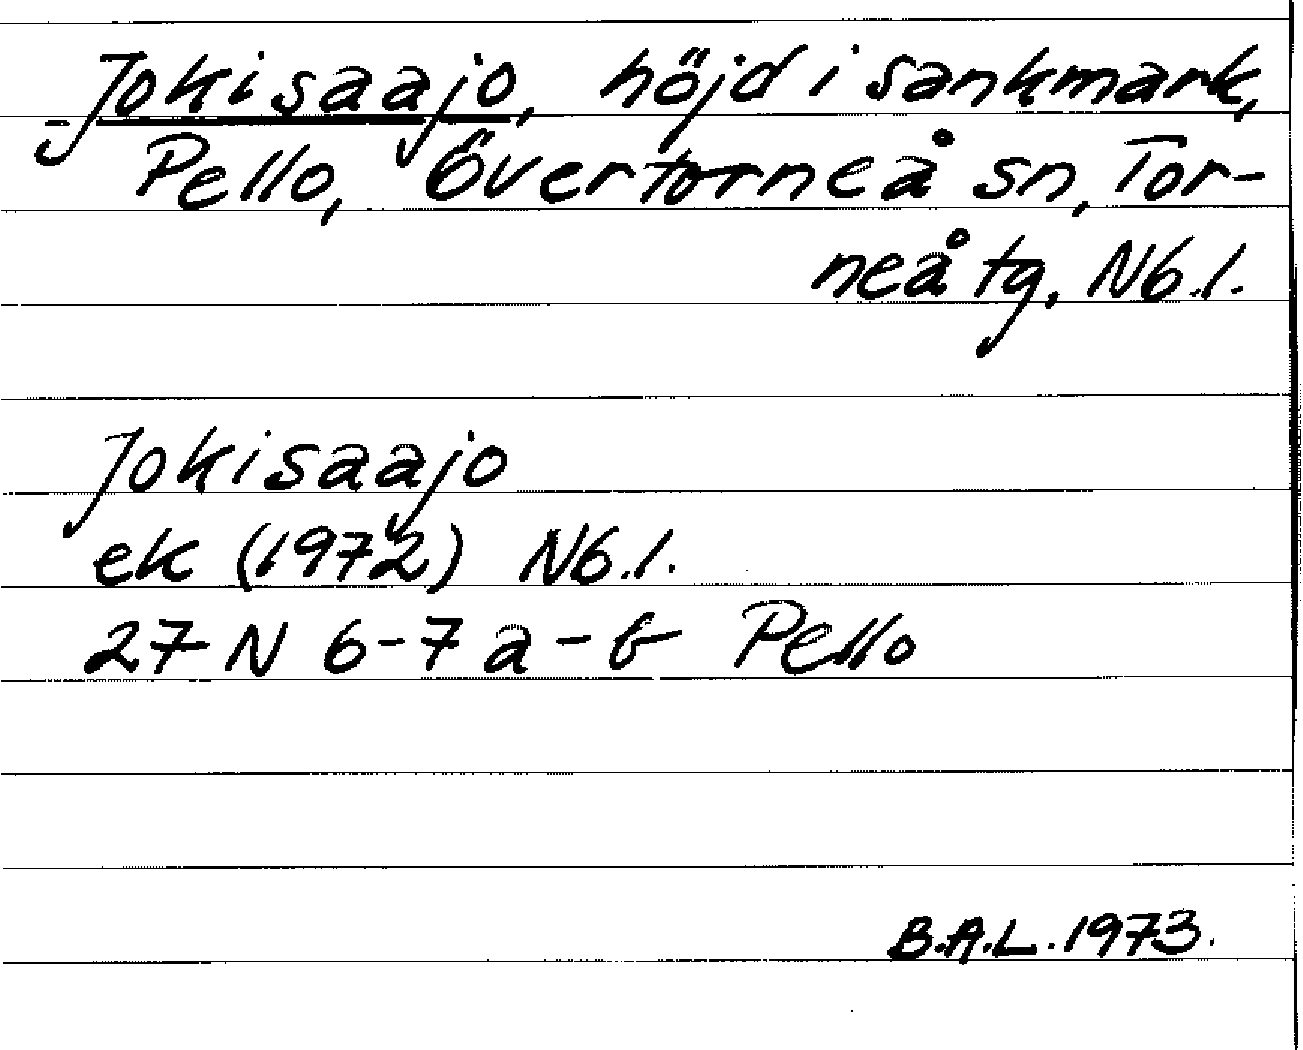 Jokisaajo, höjd i sankmark,
Pello, Övertorneå sn, Tor-
neå tg, Nb.l.
Jokisaajo
ek (1972) Nb.l.
27 N 6-7 a-b Pello
B.A.L. 1973.